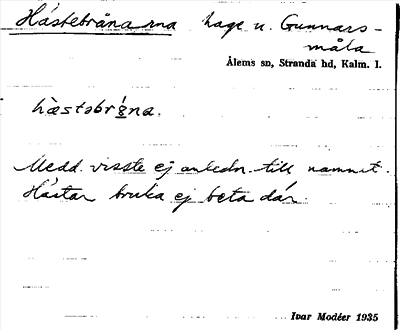 Hästebråna rna hage u. Gunnars-
måla
Ålems sn, Stranda hd, Kalm. l.
hæstəbrǻna.
Medd. visste ej anledn. till namnet.
Hästar bruka ej beta där.
Ivar Modéer 1935